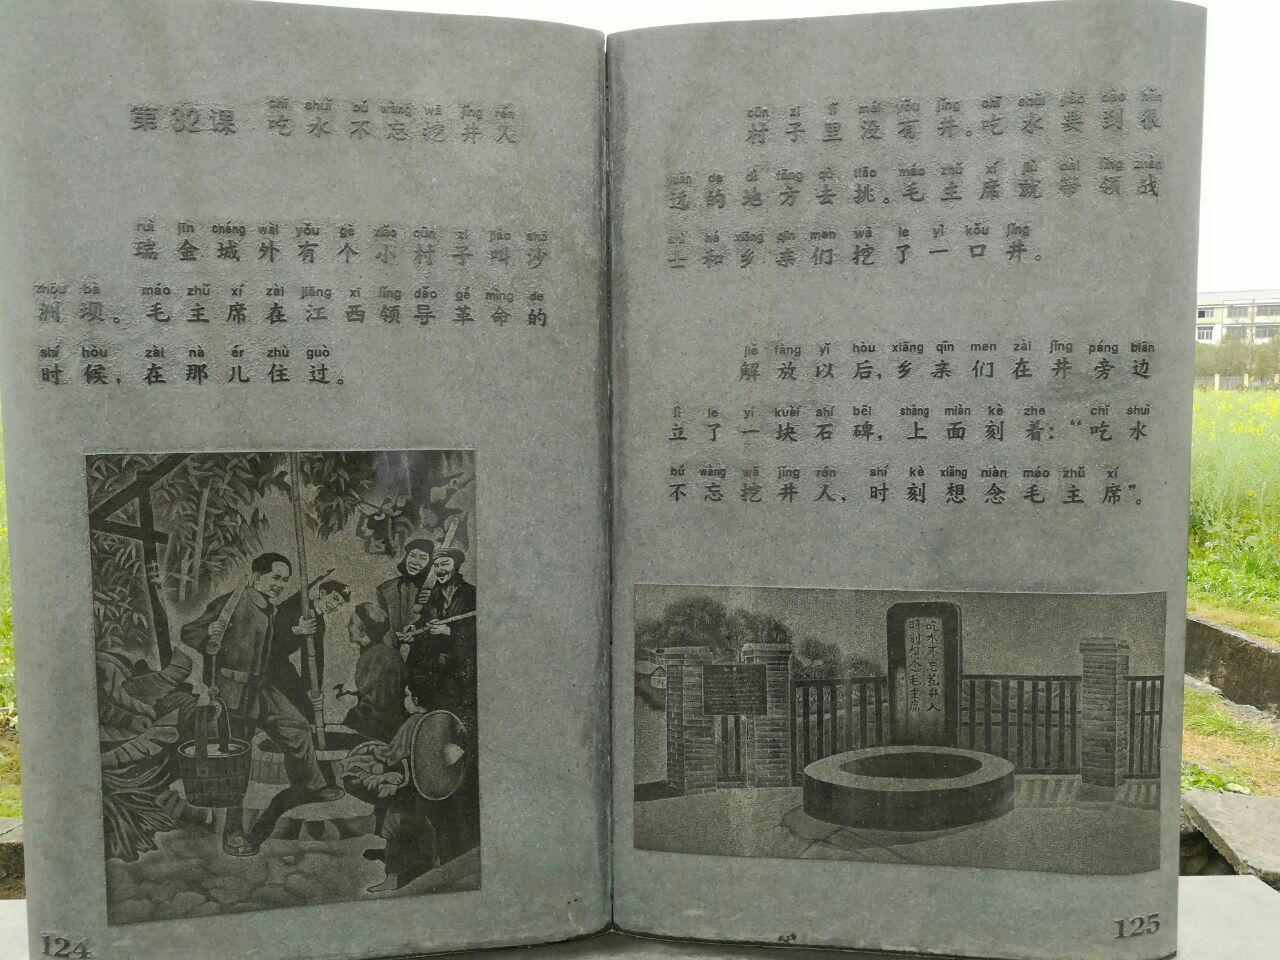 第 32 课 吃水不忘挖井人
chī shuǐ bú wàng wā jǐng rén
ruì jīn chéng wài yǒu gè xiǎo cūn zi jiào shā
瑞金城外有个小村子叫沙
zhōu bà máo zhǔ xí zài jiāng xī lǐng dǎo gé mìng de
洲坝。毛主席在江西领导革命的
shí hòu zài nà ér zhù guò
时候，在那儿住过。
124
cūn zi lǐ méi yǒu jǐng chī shuǐ yào dào hěn
村子里没有井。吃水要到很
yuǎn de dì fāng qù tiāo máo zhǔ xí jiù dài lǐng zhàn
远的地方去挑。毛主席就带领战
shì hé xiāng qīn men wā le yì kǒu jǐng
士和乡亲们挖了一口井。
jiě fàng yǐ hòu xiāng qīn men zài jǐng páng biān
解放以后，乡亲们在井旁边
lì le yí kuài shí bēi shàng miàn kè zhe chī shuǐ
立了一块石碑，上面刻着：“吃水
bú wàng wā jǐng rén shí kè xiǎng niàn máo zhǔ xí
不忘挖井人，时刻想念毛主席”。
吃水不忘挖井人
時刻想念毛主席
125